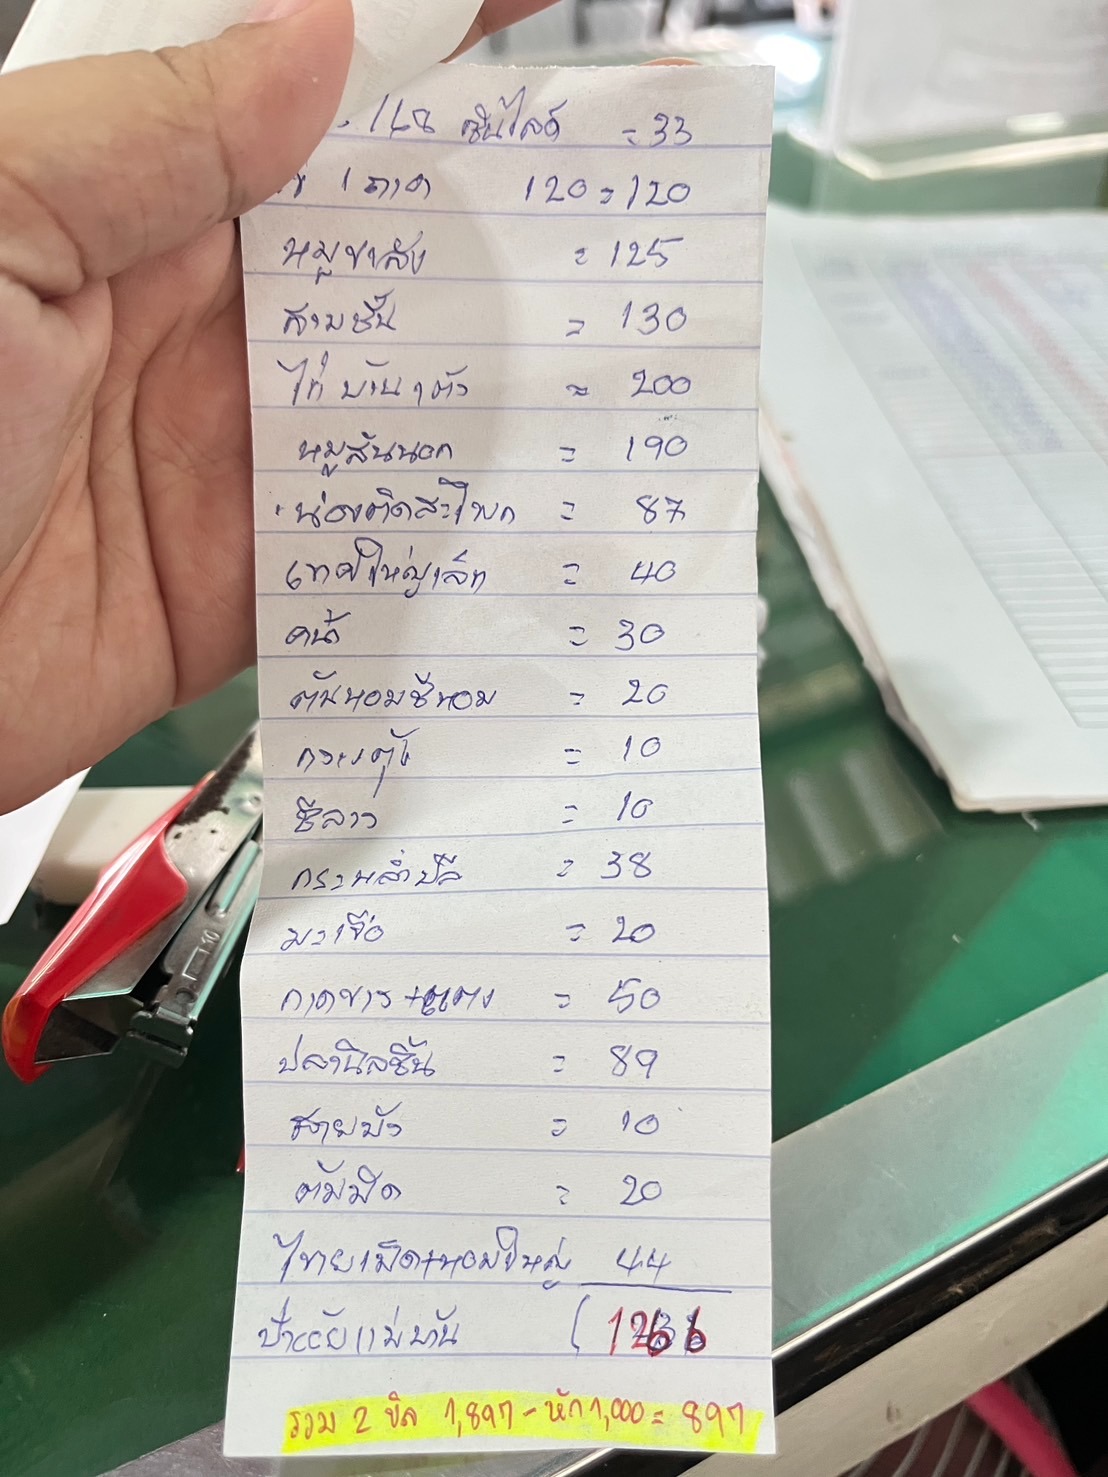 ซันไลต์ = 33
1 ถาด 120 = 120
หมูขาสัง = 125
สามชั้น = 130
ไก่บ้าน 1 ตัว = 200
หมูสันนอก = 190
น่องติดสะโพก = 87
เทศใหญ่เล็ก = 40
คน้า = 30
ต้นหอมชีหอม = 20
กวางตุ้ง = 10
ชีลาว = 10
กระหล่ำปลี = 38
มะเขือ = 20
กาดขาว + แตง = 50
ปลานิลชิ้น = 89
สายบัว = 10
= 20
44
ป้าแจ๋ว แม่บ้าน 1266
รวม 2 บิล 1,897 - หัก 1,000 = 897